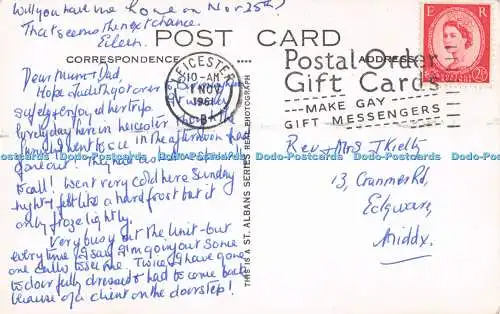 Will you have me home on Nov 25th?
That seems the next chance.
Eileen.
POST CARD
CORRESPONDENCE
ADDRESS
Dear Mum & Dad,
Hope Judith got over
safely & enjoyed her trip.
day here in Leicester
went to see in the afternoon had
gone out! They had
to call! Went very cold here Sunday
night, felt like a hard frost but it
only froze lightly.
Very busy at the Unit - but
every time I say I'm going out some
one calls to see me. Twice I have gone
to door fully dressed & had to come back
because of a client on the doorstep!
THIS IS A ST. ALBANS SERIES REAL PHOTOGRAPH
LEICESTER
10-AM
1 NOV
1961
B
Postal Order
Gift Cards
MAKE GAY
GIFT MESSENGERS
E R
2½D
Rev & Mrs J Kielty
13, Cranmer Rd,
Edgware,
Middx.
Dodo-Postcards Dodo-Postcards Dodo-Postcards Dodo-Postcards Dodo-Postcards